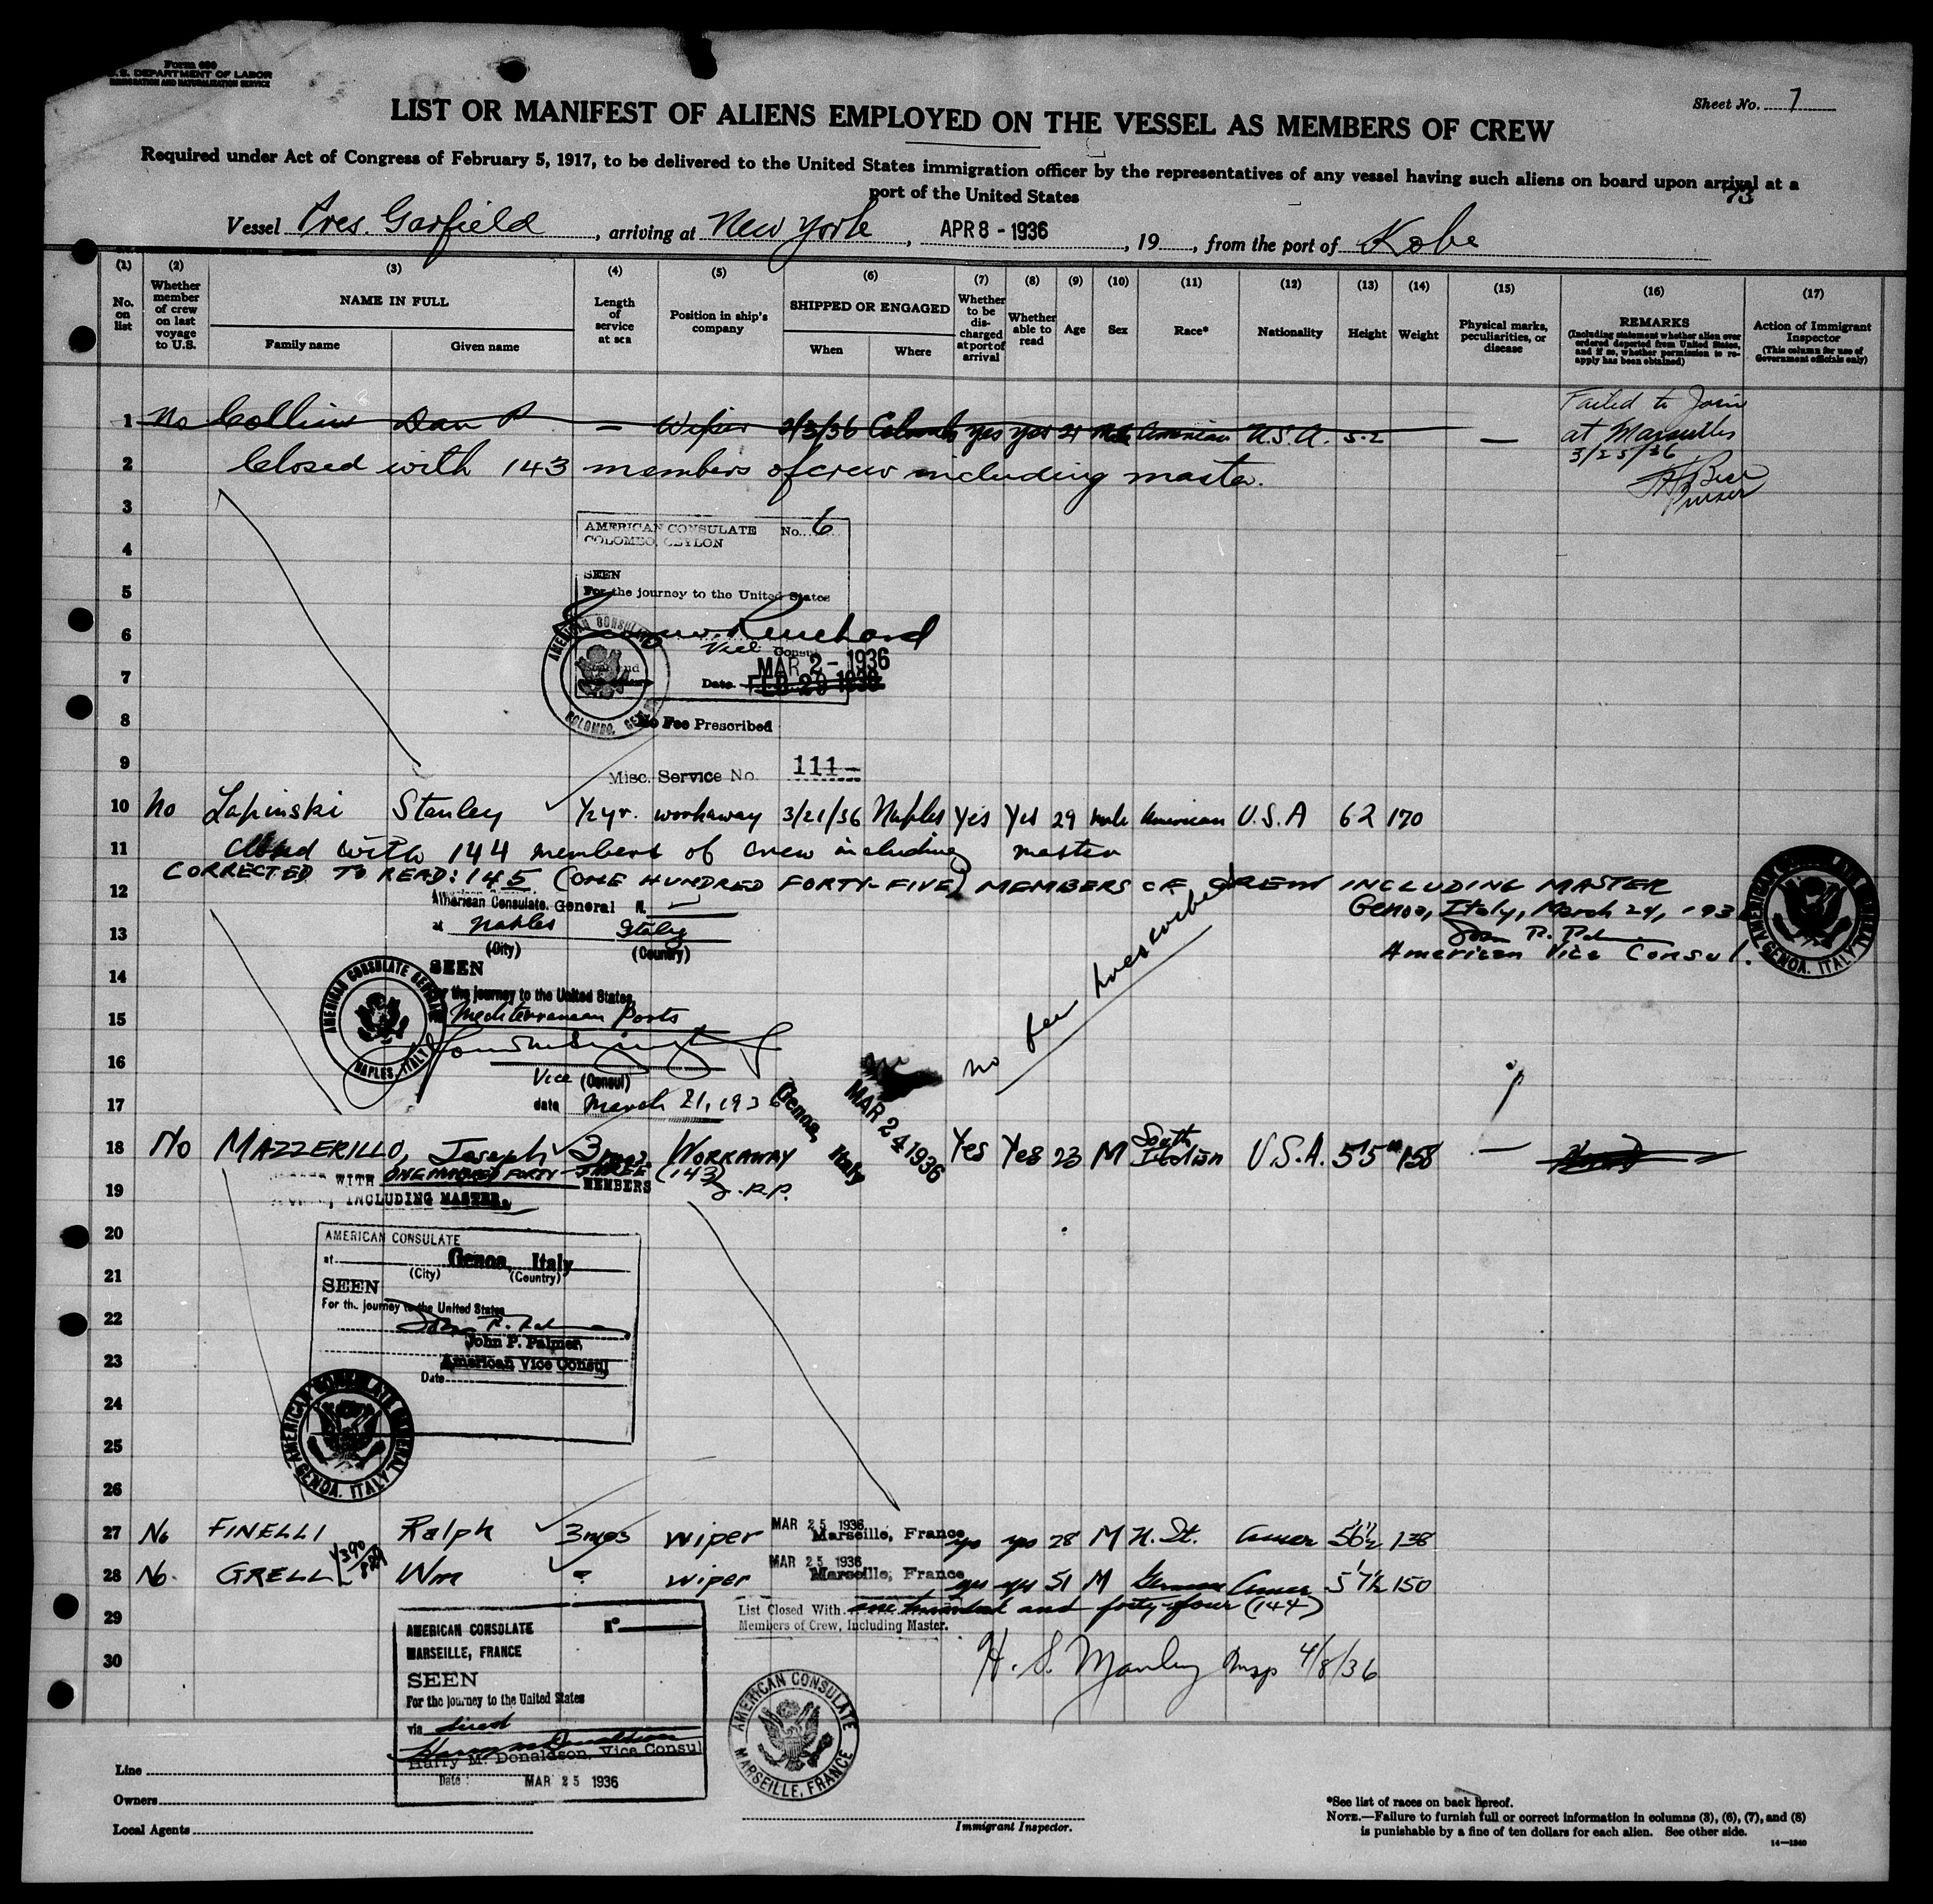 Form 680
U. S. DEPARTMENT OF LABOR
IMMIGRATION AND NATURALIZATION SERVICE
Sheet No. 7
LIST OR MANIFEST OF ALIENS EMPLOYED ON THE VESSEL AS MEMBERS OF CREW
Required under Act of Congress of February 5, 1917, to be delivered to the United States immigration officer by the representatives of any vessel having such aliens on board upon arrival at a
port of the United States
73
Vessel Pres. Garfield, arriving at New York, APR 8 - 1936, 19, from the port of Kobe
(1) (2) (3) (4) (5) (6) (7) (8) (9) (10) (11) (12) (13) (14) (15) (16) (17)
No. on list
Whether member of crew on last voyage to U.S.
NAME IN FULL
Family name Given name
Length of service at sea
Position in ship's company
SHIPPED OR ENGAGED
When Where
Whether to be discharged at port of arrival
Whether able to read
Age
Sex
Race*
Nationality
Height
Weight
Physical marks, peculiarities, or disease
REMARKS
(Including statement whether alien ever ordered deported from United States, and if so, whether permission to reapply has been obtained)
Action of Immigrant Inspector
(This column for use of Government officials only)
1 No Collins Dan P — Wiper 3/3/36 Colombo yes yes 21 Male American U.S.A. 5-2 —
Failed to Join
at Marseilles
3/25/36
Purser
2 Closed with 143 members of crew including master.
3
AMERICAN CONSULATE No. 6
COLOMBO, CEYLON
4
SEEN
5 For the journey to the United States
6
Vice Consul
MAR 2 - 1936
7 Date FEB 29 1936
AMERICAN CONSULATE
COLOMBO, CEYLON
8 No Fee Prescribed
9 Misc. Service No. 111-
10 No Lapinski Stanley 1/2 yr. workaway 3/21/36 Naples Yes Yes 29 male American U.S.A 6-2 170
11 Closed with 144 members of crew including master
CORRECTED TO READ: 145 (ONE HUNDRED FORTY-FIVE) MEMBERS OF CREW INCLUDING MASTER
12 American Consulate General N.
Genoa, Italy, March 24, 193
at Naples Italy
13 (City) (Country)
American Vice Consul.
AMERICAN CONSULATE GENERAL GENOA, ITALY
SEEN
14 For the journey to the United States
15 Mediterranean Ports
AMERICAN CONSULATE GENERAL
NAPLES, ITALY
16
Vice (Consul)
no fee prescribed
17 date March 21, 1936
Genoa, Italy
MAR 24 1936
18 No MAZZERILLO, Joseph 3 mos WORKAWAY Yes Yes 23 M South Italian U.S.A. 5'5" 158 —
WITH ONE HUNDRED FORTY-THREE MEMBERS (143) J.P.P.
19 , INCLUDING MASTER.
20 AMERICAN CONSULATE
at Genoa, Italy
21 (City) (Country)
SEEN
For the journey to the United States
22
John P. Palmer,
23 American Vice Consul
Date
24
AMERICAN CONSULATE GENERAL GENOA, ITALY
25
26
27 No FINELLI Ralph 3 mos wiper MAR 25 1936 Marseille, France yes yes 28 M N. It. Amer 5 6½ 138
28 No. GRELL Wm " wiper MAR 25 1936 Marseille, France yes yes 51 M German Amer 5'7½ 150
29 List Closed With one hundred and forty-four (144)
Members of Crew, Including Master.
AMERICAN CONSULATE N°
MARSEILLE, FRANCE
30 H. S. Manley Insp 4/8/36
SEEN
For the journey to the United States
via direct
Harry M. Donaldson, Vice Consul
Date: MAR 25 1936
AMERICAN CONSULATE
MARSEILLE, FRANCE
Line
Owners
Local Agents
Immigrant Inspector.
*See list of races on back hereof.
NOTE.—Failure to furnish full or correct information in columns (3), (6), (7), and (8)
is punishable by a fine of ten dollars for each alien. See other side.
14—1240